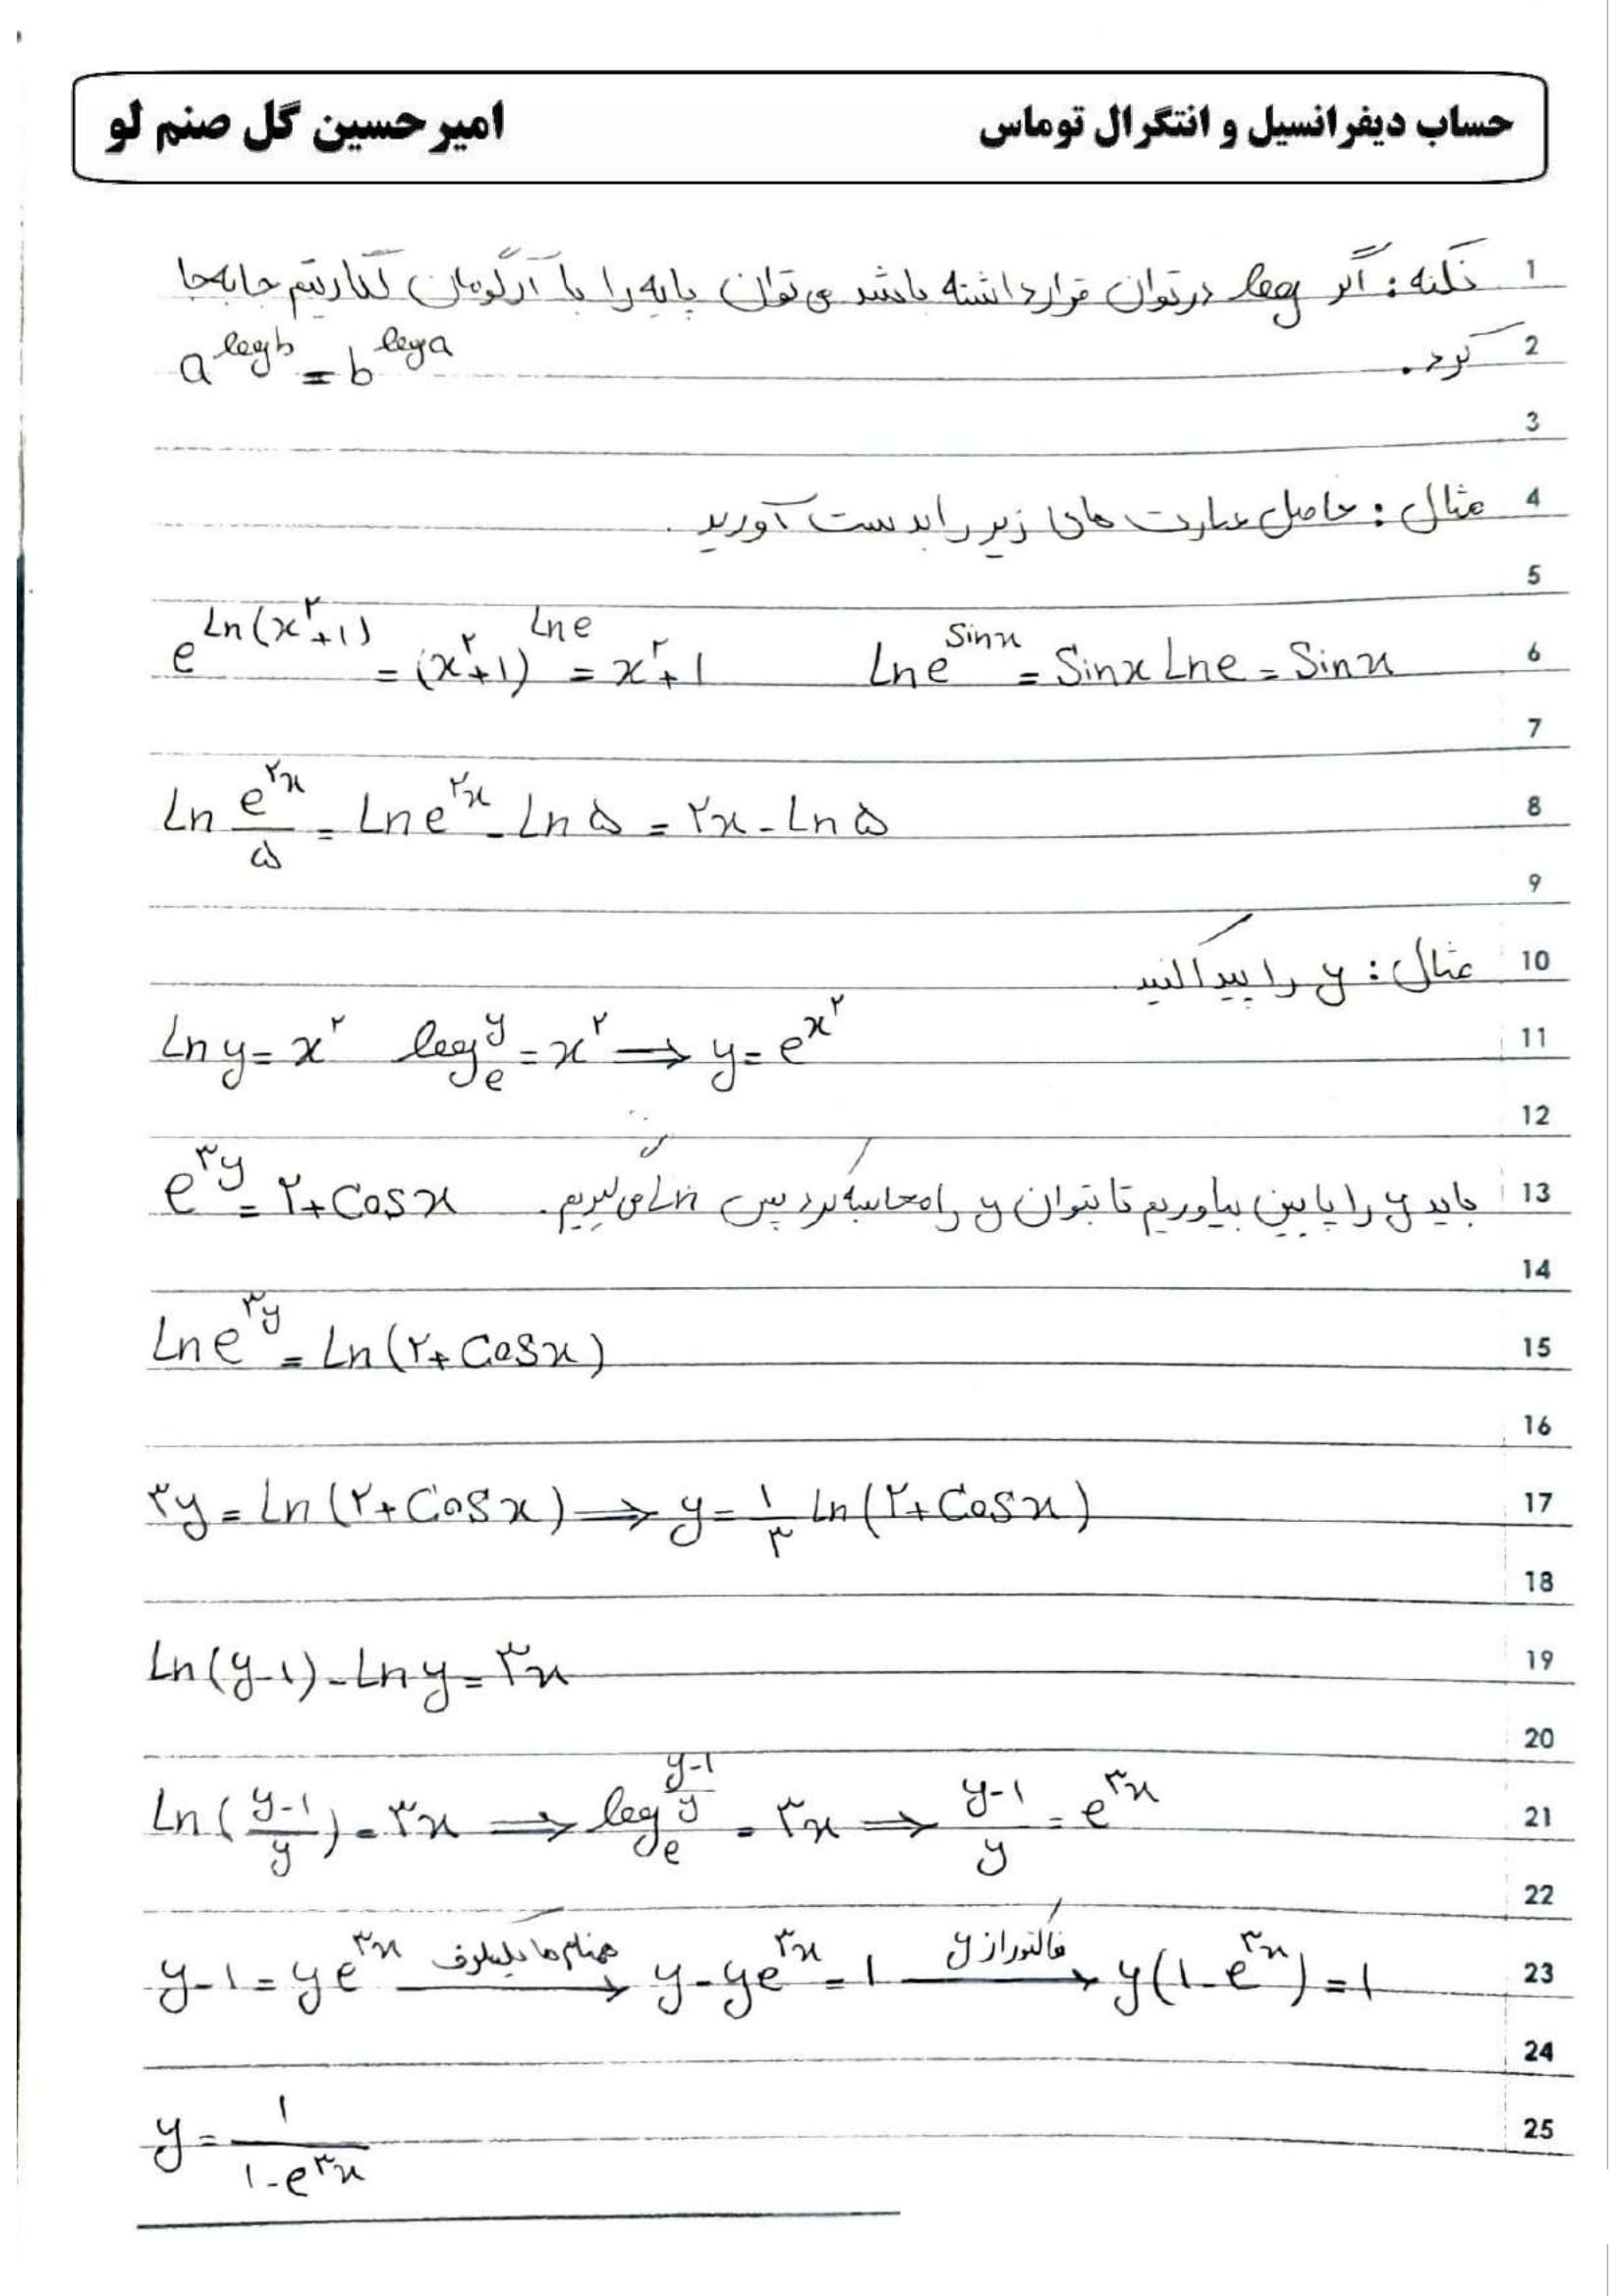 حساب دیفرانسیل و انتگرال توماس امیرحسین گل صنم لو
1 نکته: اگر log در توان قرار داشته باشد می توان پایه را با آرگومان لگاریتم جابه جا
2 کرد. a^logb = b^loga
3
4 مثال: حاصل عبارت های زیر را بدست آورید.
5
6 e^Ln(x^۲+۱) = (x^۲+۱)^Lne = x^۲+۱ Lne^Sinx = Sinx Lne = Sinx
7
8 Ln e^۲x/۵ = Lne^۲x - Ln۵ = ۲x - Ln۵
9
10 مثال: y را پیدا کنید.
11 Lny = x^۲ log_e^y = x^۲ ⟹ y = e^x^۲
12
13 e^۳y = ۲+Cosx باید y را پایین بیاوریم تا بتوان y را محاسبه کرد پس Ln می گیریم.
14
15 Lne^۳y = Ln(۲+Cosx)
16
17 ۳y = Ln(۲+Cosx) ⟹ y = ۱/۳ Ln(۲+Cosx)
18
19 Ln(y-۱) - Lny = ۳x
20
21 Ln(y-۱/y) = ۳x ⟹ log_e^y-۱/y = ۳x ⟹ y-۱/y = e^۳x
22
23 y-۱ = ye^۳x ⟶ y - ye^۳x = ۱ فاکتور از y ⟶ y(۱-e^۳x) = ۱
24
25 y = ۱/۱-e^۳x